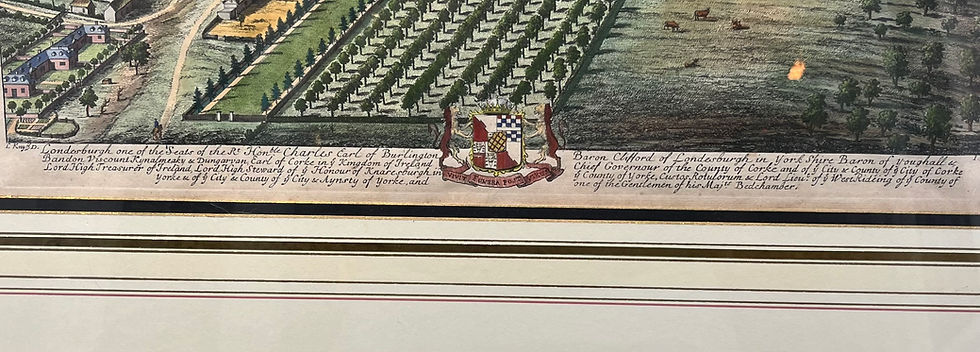 Londesburgh one of the Seats of the Rt. Honble Charles Earl of Burlington Baron Clifford of Londesburgh in York Shire Baron of Youghall &
Bandon Viscount Kynalmeaky & Dungarvan Earl of Corke in ye Kingdom of Ireland Chief Governour of the County of Corke and of ye City & County of ye City of Corke
Lord High Treasurer of Ireland, Lord High Steward of ye Honour of Knaresburgh in ye County of Yorke, Custos Rotulorum & Lord Lieut. of ye West Rideing of ye County of
Yorke & of ye City & County of ye City & Aynsty of Yorke, and one of the Gentlemen of his Majts Bedchamber.
FUNERA